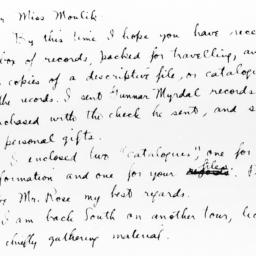 r Miss Moulik:
By this time I hope you have rece
of records, packed for travelling, an
copies of a descriptive file, or catalogu
the records. I sent Gunnar Myrdal records
chased with the check he sent, and s
personal gifts.
I enclosed two "catalogues" one for
formation and one for your files.
Mr. Rose my best regards.
I am back South on another tour, lec
chiefly gathering material.